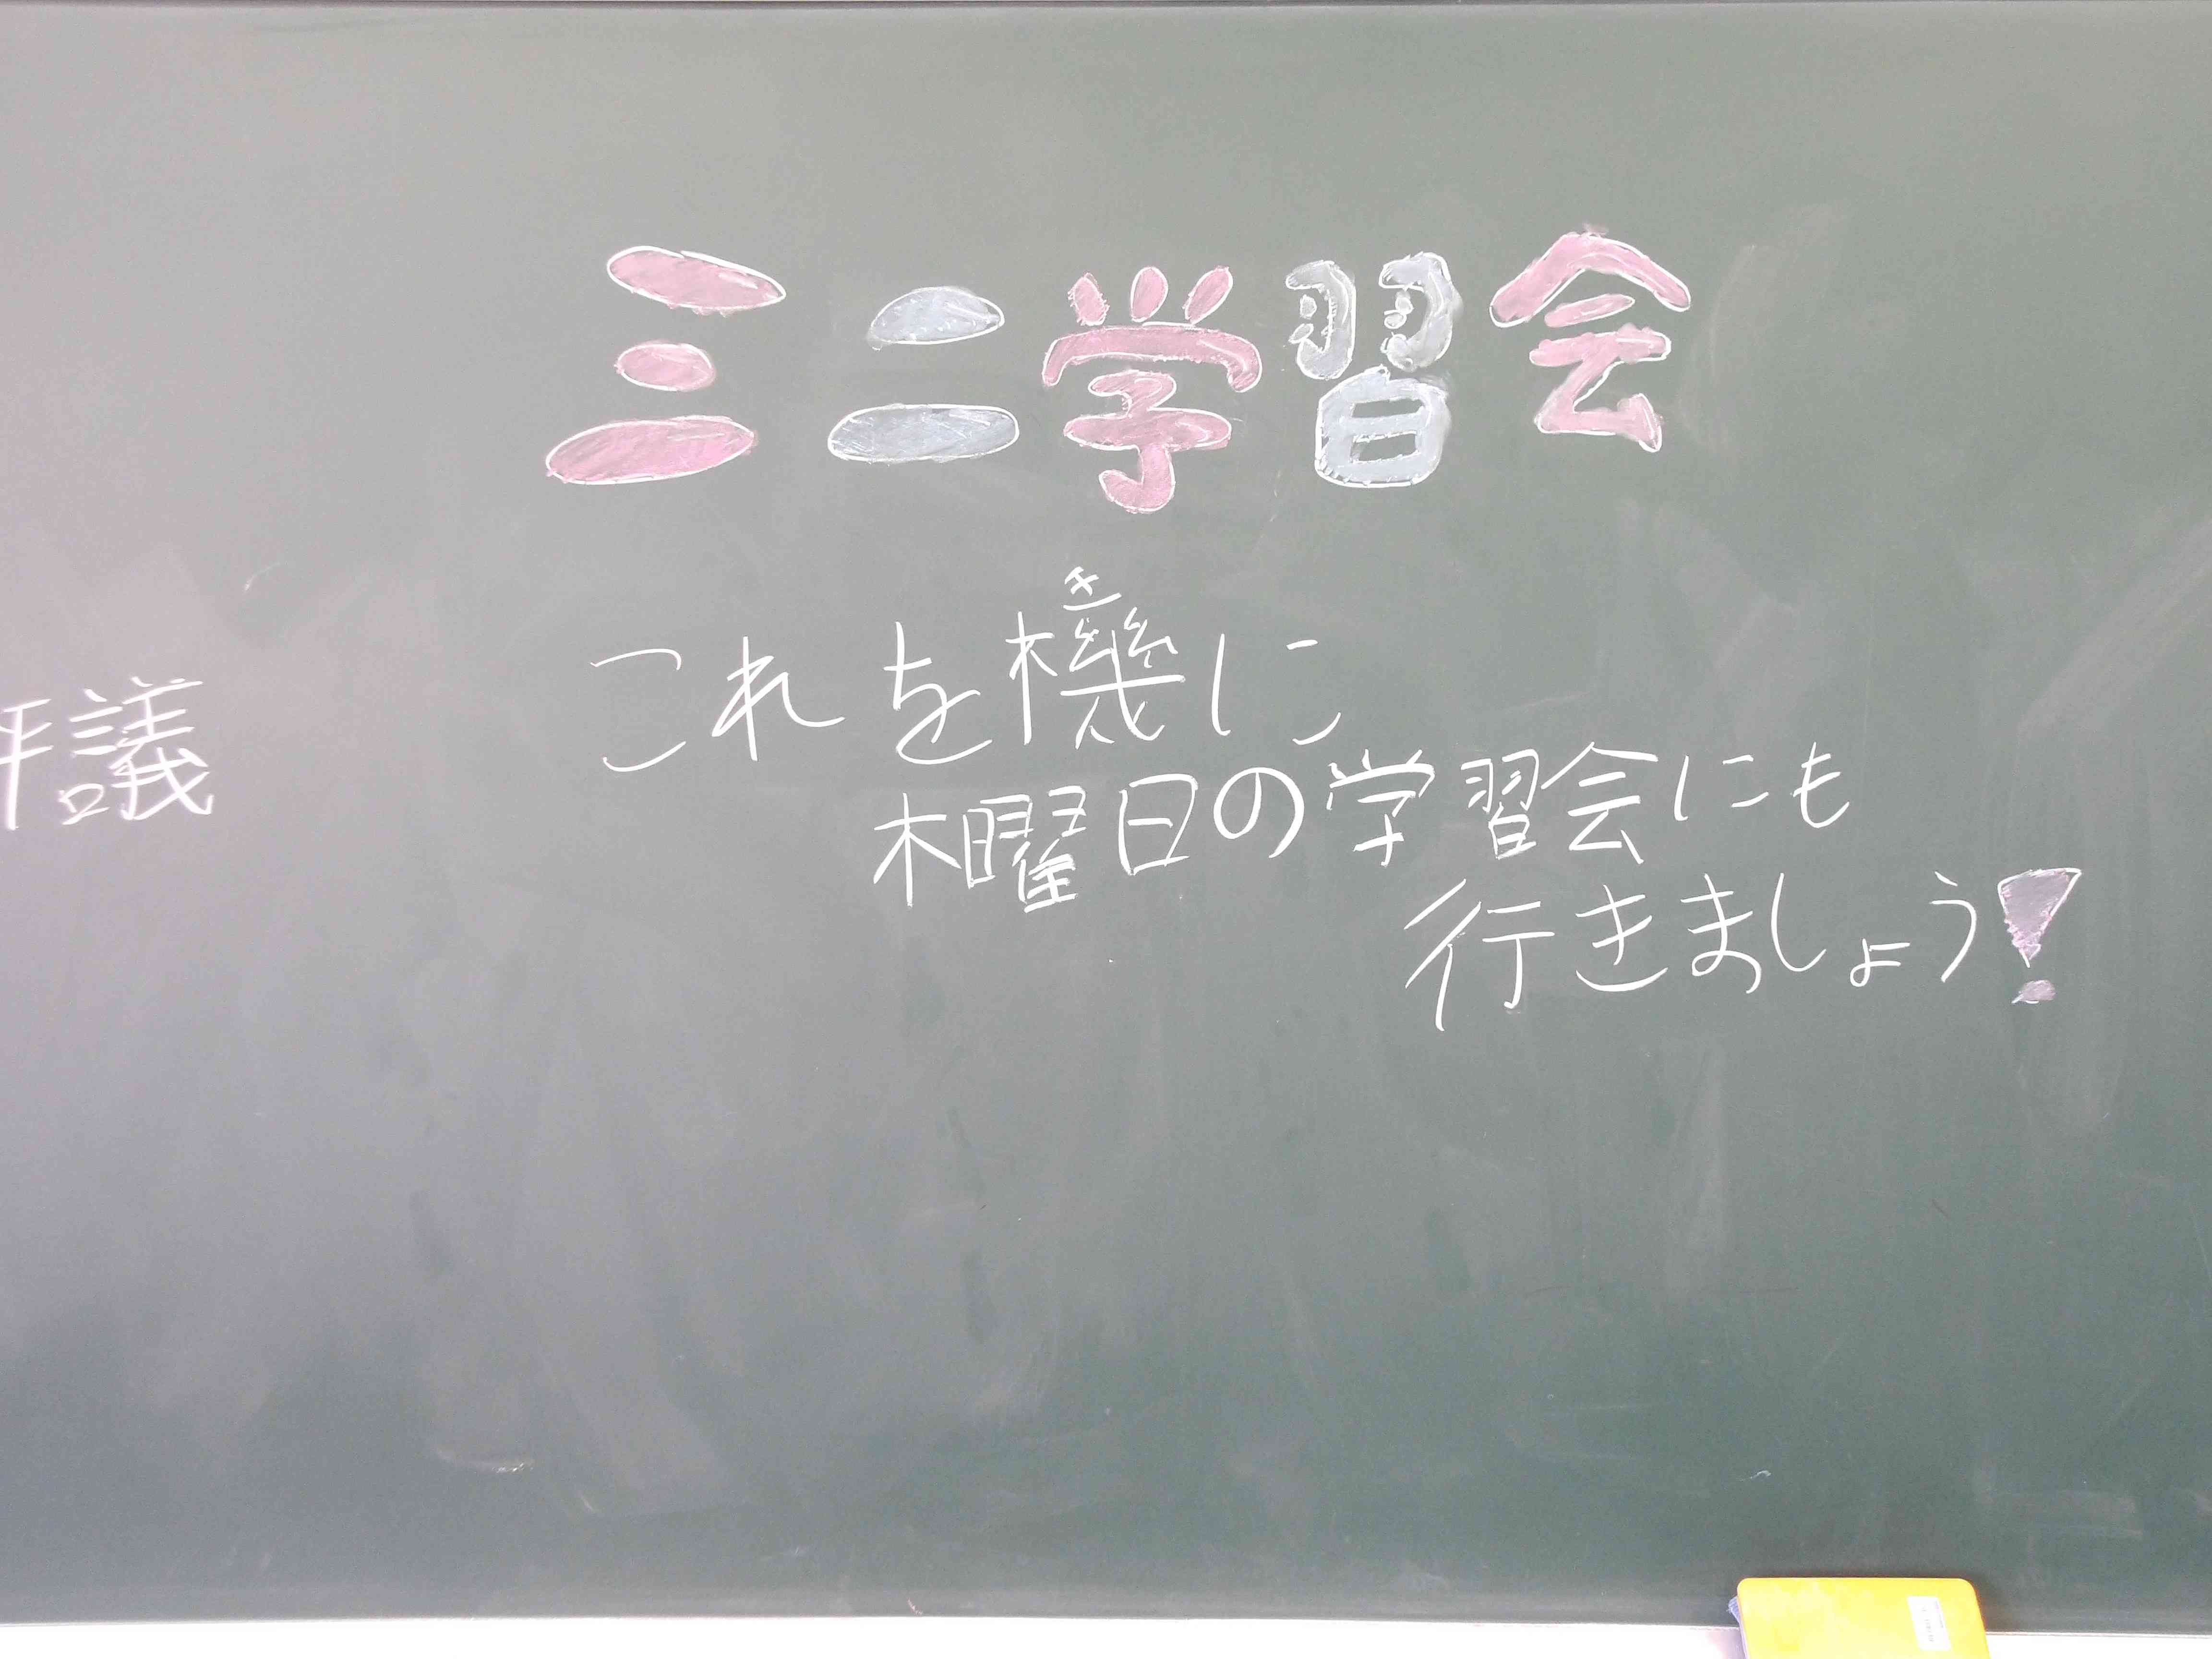 ミニ学習会
き
これを機に
木曜日の学習会にも
行きましょう!
議